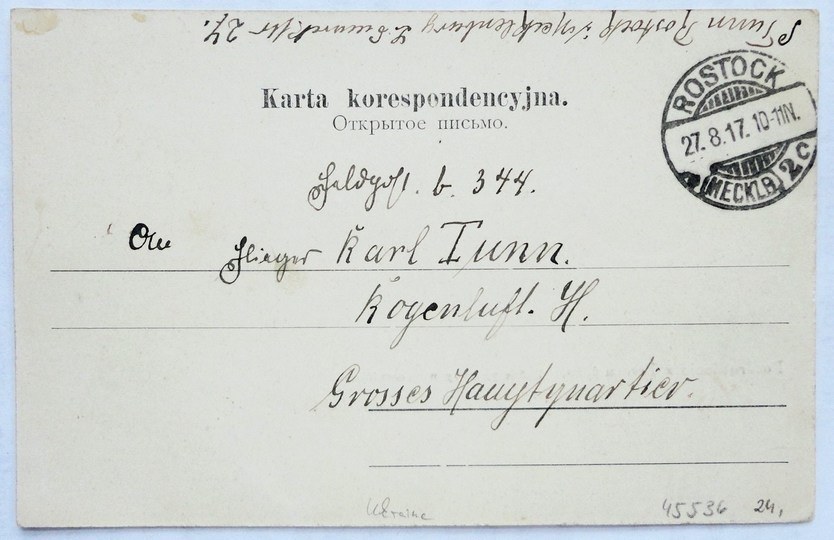 Tunn Rostock i/Mecklenburg Nr 27.
Karta korespondencyjna.
Открытое письмо.
ROSTOCK
27. 8. 17. 10-11N.
(MECKLB) 2c
Feldpost. b. 344.
An Flieger Karl Tunn.
Kogenluft. H.
Grosses Hauptquartier.
Ukraine
45536 24,